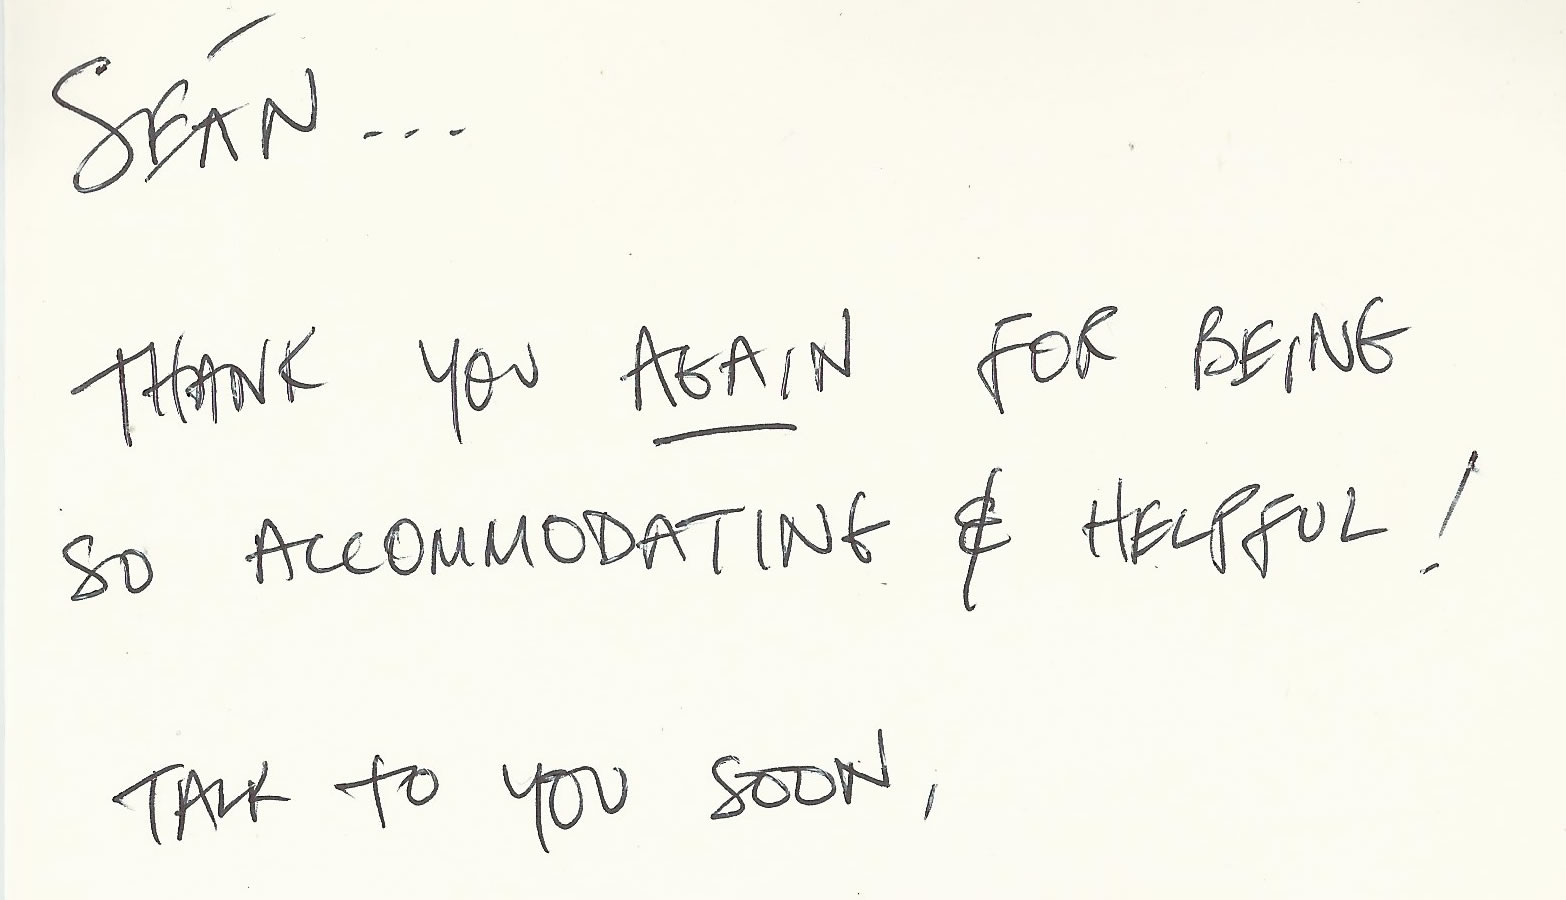 SEÁN...
THANK YOU AGAIN FOR BEING
SO ACCOMMODATING & HELPFUL!
TALK TO YOU SOON,